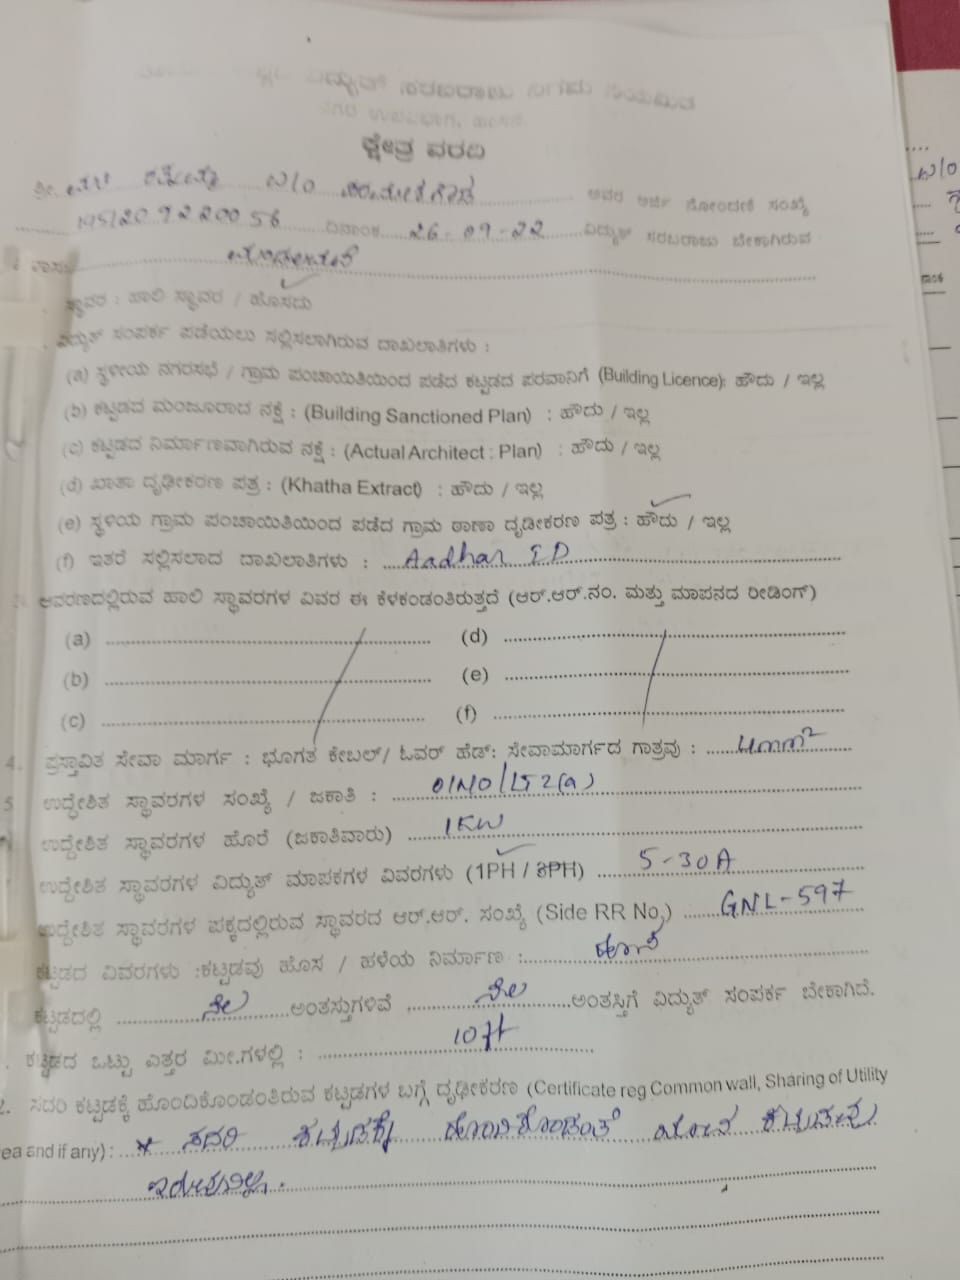 ವಿದ್ಯುತ್ ಸರಬರಾಜು ನಿಗಮ ನಿಯಮಿತ
ನಗರ ಉಪವಿಭಾಗ, ಹಾಸನ.
ಕ್ಷೇತ್ರ ವರದಿ
ಶ್ರೀ. W/O ಅವರ ಅರ್ಜಿ ನೋಂದಣಿ ಸಂಖ್ಯೆ
ದಿನಾಂಕ 26-09-22 ವಿದ್ಯುತ್ ಸರಬರಾಜು ಬೇಕಾಗಿರುವ
ಸ್ಥಾವರ : ಹಾಲಿ ಸ್ಥಾವರ / ಹೊಸದು
ವಿದ್ಯುತ್ ಸಂಪರ್ಕ ಪಡೆಯಲು ಸಲ್ಲಿಸಲಾಗಿರುವ ದಾಖಲಾತಿಗಳು :
(a) ಸ್ಥಳೀಯ ನಗರಸಭೆ / ಗ್ರಾಮ ಪಂಚಾಯಿತಿಯಿಂದ ಪಡೆದ ಕಟ್ಟಡದ ಪರವಾನಿಗೆ (Building Licence): ಹೌದು / ಇಲ್ಲ
(b) ಕಟ್ಟಡದ ಮಂಜೂರಾದ ನಕ್ಷೆ : (Building Sanctioned Plan) : ಹೌದು / ಇಲ್ಲ
(c) ಕಟ್ಟಡದ ನಿರ್ಮಾಣವಾಗಿರುವ ನಕ್ಷೆ : (Actual Architect : Plan) : ಹೌದು / ಇಲ್ಲ
(d) ಖಾತಾ ದೃಢೀಕರಣ ಪತ್ರ : (Khatha Extract) : ಹೌದು / ಇಲ್ಲ
(e) ಸ್ಥಳಿಯ ಗ್ರಾಮ ಪಂಚಾಯಿತಿಯಿಂದ ಪಡೆದ ಗ್ರಾಮ ಠಾಣಾ ದೃಡೀಕರಣ ಪತ್ರ : ಹೌದು / ಇಲ್ಲ
(f) ಇತರೆ ಸಲ್ಲಿಸಲಾದ ದಾಖಲಾತಿಗಳು : Aadhar ID
ಆವರಣದಲ್ಲಿರುವ ಹಾಲಿ ಸ್ಥಾವರಗಳ ವಿವರ ಈ ಕೆಳಕಂಡಂತಿರುತ್ತದೆ (ಆರ್.ಆರ್.ನಂ. ಮತ್ತು ಮಾಪನದ ರೀಡಿಂಗ್)
(a) (d)
(b) (e)
(c) (f)
4. ಪ್ರಸ್ತಾವಿತ ಸೇವಾ ಮಾರ್ಗ : ಭೂಗತ ಕೇಬಲ್/ ಓವರ್ ಹೆಡ್: ಸೇವಾಮಾರ್ಗದ ಗಾತ್ರವು : 4mm²
5 ಉದ್ದೇಶಿತ ಸ್ಥಾವರಗಳ ಸಂಖ್ಯೆ / ಜಕಾತಿ : 01NO/LT2(a)
ಉದ್ದೇಶಿತ ಸ್ಥಾವರಗಳ ಹೊರೆ (ಜಕಾತಿವಾರು) 1KW
ಉದ್ದೇಶಿತ ಸ್ಥಾವರಗಳ ವಿದ್ಯುತ್ ಮಾಪಕಗಳ ವಿವರಗಳು (1PH / 3PH) 5-30A
ಉದ್ದೇಶಿತ ಸ್ಥಾವರಗಳ ಪಕ್ಕದಲ್ಲಿರುವ ಸ್ಥಾವರದ ಆರ್.ಆರ್. ಸಂಖ್ಯೆ (Side RR No,) GNL-597
ಕಟ್ಟಡದ ವಿವರಗಳು :ಕಟ್ಟಡವು ಹೊಸ / ಹಳೆಯ ನಿರ್ಮಾಣ :
ಕಟ್ಟಡದಲ್ಲಿ ನೆಲ ಅಂತಸ್ತುಗಳಿವೆ , ನೆಲ ಅಂತಸ್ತಿಗೆ ವಿದ್ಯುತ್ ಸಂಪರ್ಕ ಬೇಕಾಗಿದೆ.
ಕಟ್ಟಡದ ಒಟ್ಟು ಎತ್ತರ ಮೀ.ಗಳಲ್ಲಿ : 10ft
2. ಸದರಿ ಕಟ್ಟಡಕ್ಕೆ ಹೊಂದಿಕೊಂಡಂತಿರುವ ಕಟ್ಟಡಗಳ ಬಗ್ಗೆ ದೃಢೀಕರಣ (Certificate reg Common wall, Sharing of Utility
ea and if any) : * ಸದರಿ ಕಟ್ಟಡಕ್ಕೆ ಹೊಂದಿಕೊಂಡಂತೆ ಯಾವ ಕಟ್ಟಡವು
ಇರುವುದಿಲ್ಲ.